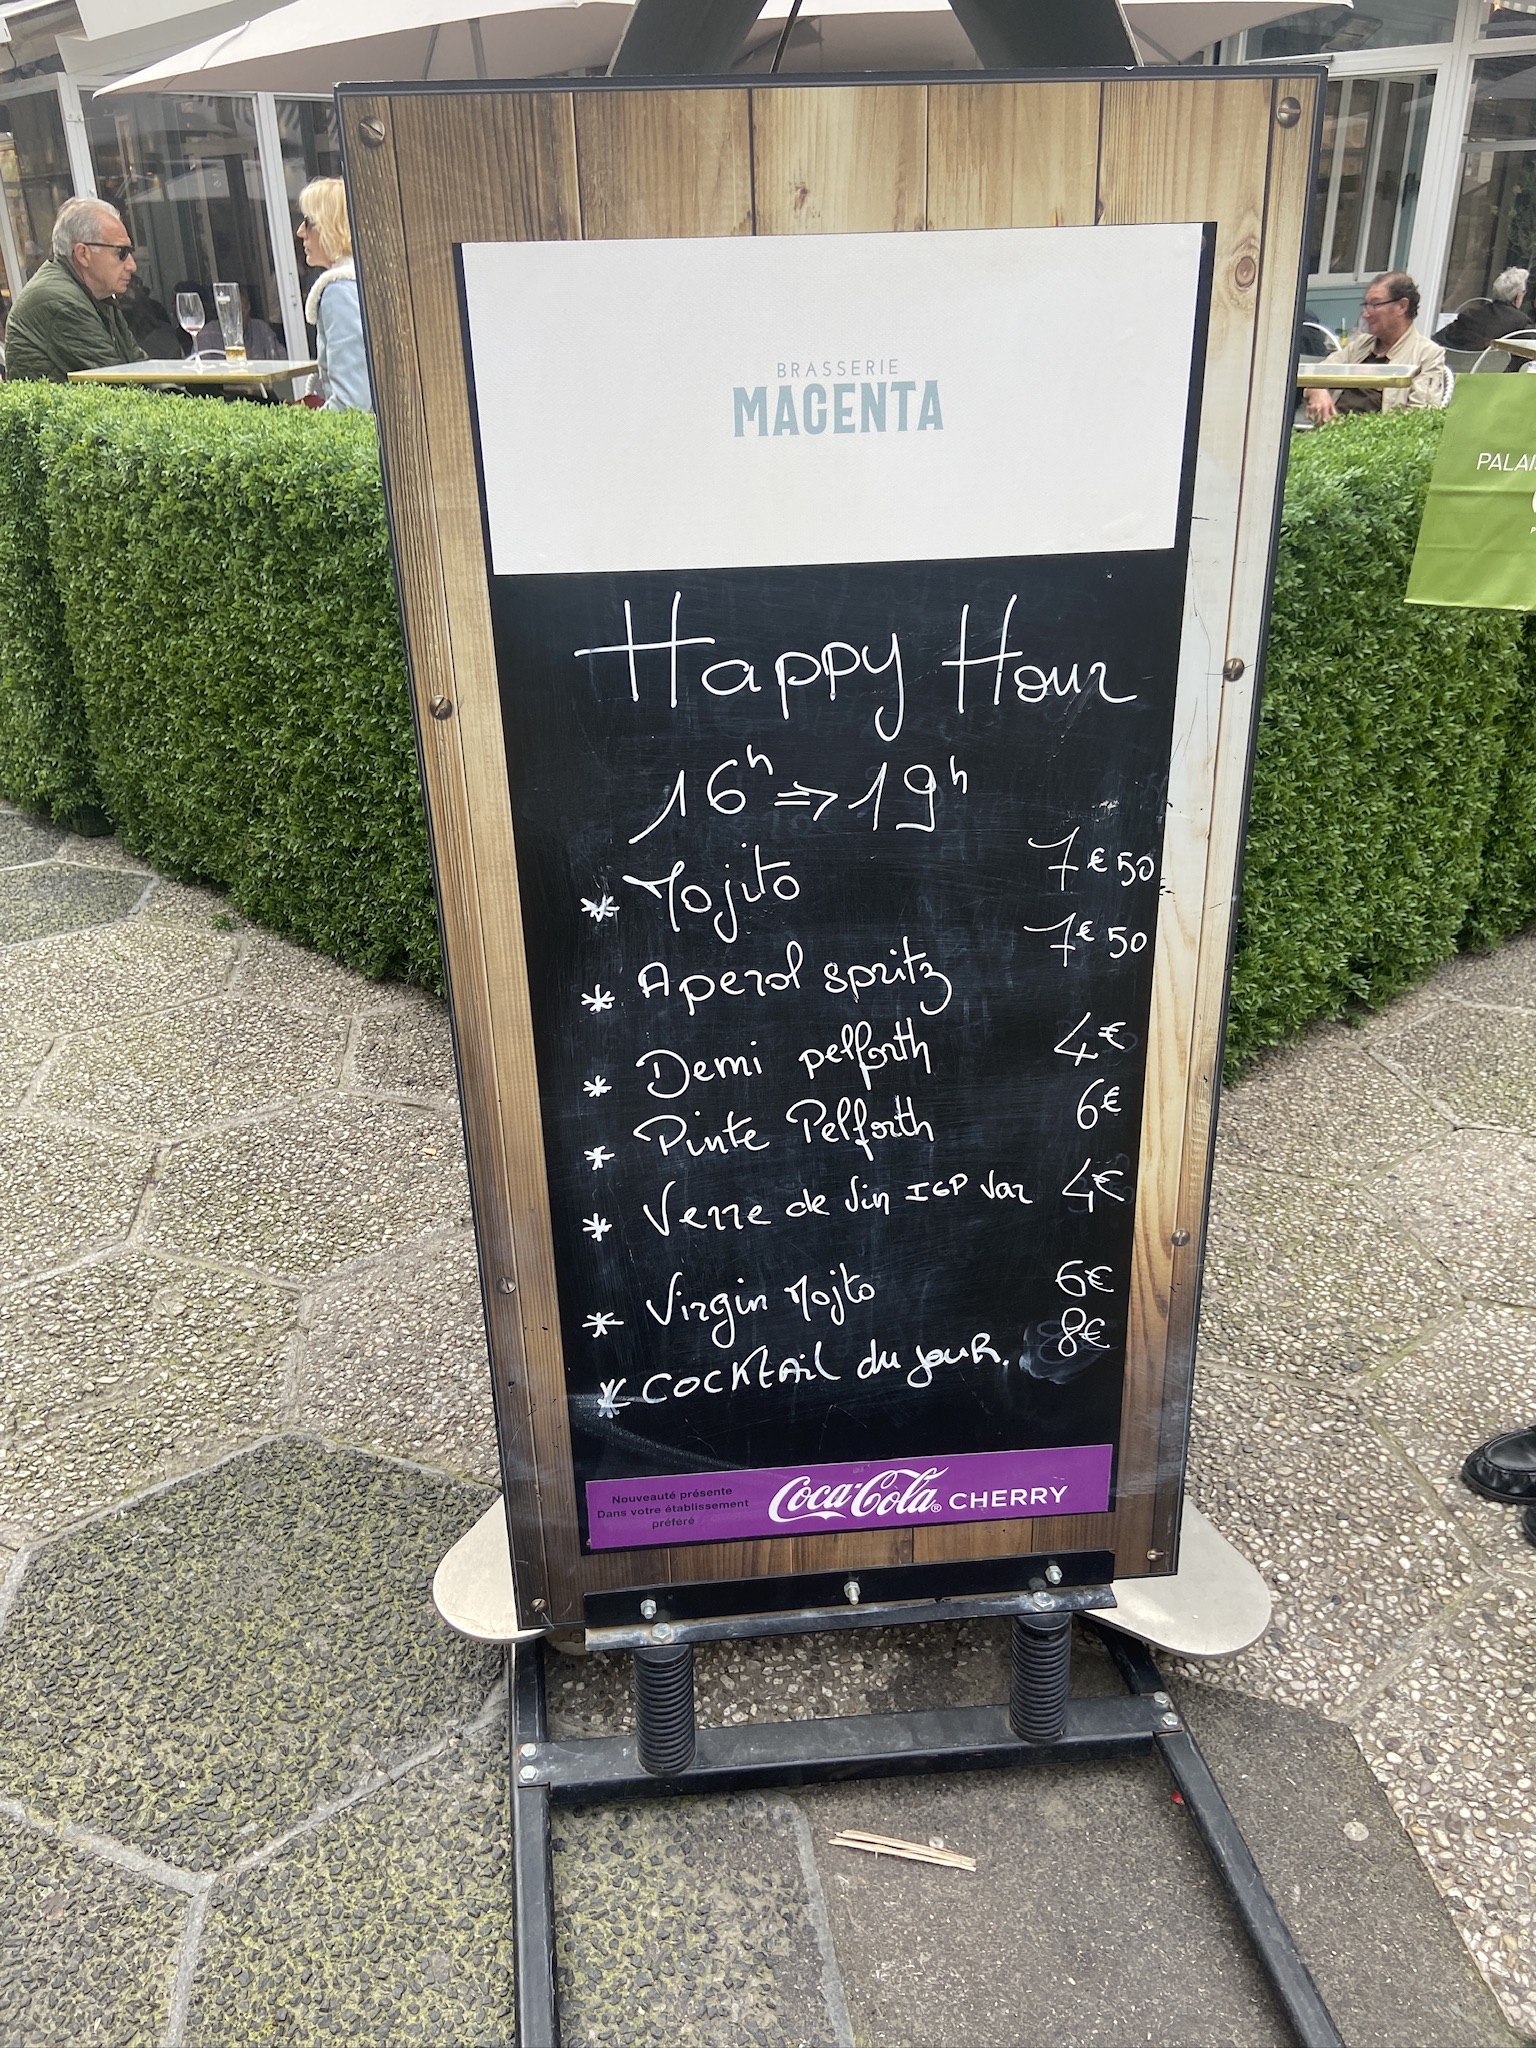 BRASSERIE
MAGENTA
PALAI
Happy Hour
16h => 19h
* Mojito 7€50
* Aperol spritz 7€50
* Demi pelforth 4€
* Pinte Pelforth 6€
* Verre de vin IGP Var 4€
* Virgin Mojto 6€
* COCKTAIL du jouR. 8€
Nouveauté présente
Dans votre établissement
préféré
Coca-Cola® CHERRY